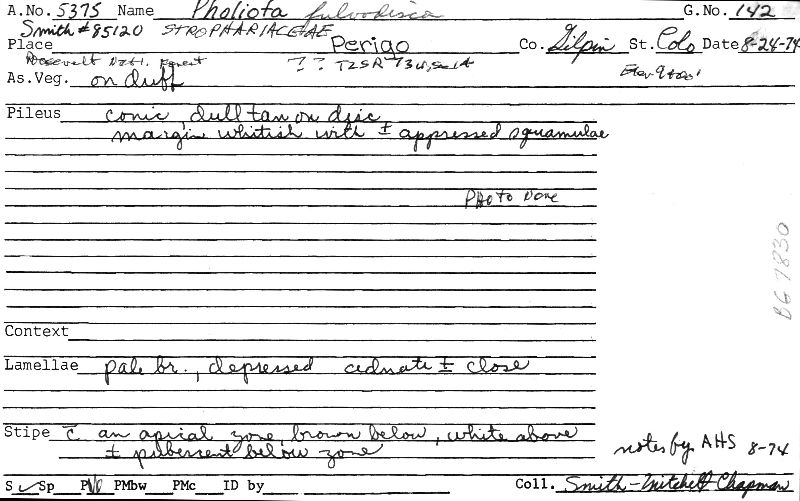 A.No. 5375 Name Pholiota fulvodisca G.No. 142
Smith # 85120 STROPHARIACEAE
Place Perigo Co. Gilpin St. Colo Date 8-24-74
Roosevelt Natl. Forest ? ? T2S R73W,
As.Veg. on duff
Pileus conic, dull tan on disc
margin whitish with ± appressed squamulae
Photo Done
BG 7830
Context
Lamellae pale br., depressed adnate ± close
Stipe c̄ an apical zone, brown below, white above
± pubescent below zone
notes by AHS 8-74
S Sp PMbw PMc ID by Coll. Smith-Mitchell Chapman